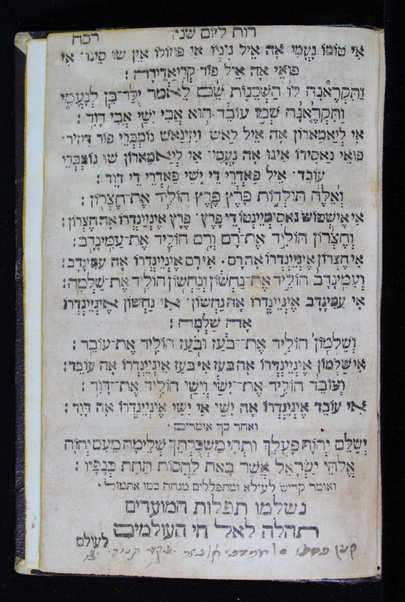 רות ליום שני: רכח
אי טומו נעמי אה איל ניניו אי פוזולו אין שו סינו אי
פואי אה איל פור קריאדירה :
ותקראנה לו השכנות שם לאמר ילד־בן לנעמי
ותקראנה שמו עובד הוא אבי ישי אבי דוד :
אי לייאמארון אה איל לאש ויזינאש נומברי פור דיזיר
פואי נאסידו איגו אה נעמי אי לייאמארון שו נומברי
עובד איל פאדרי די ישי פאדרי די דוד :
ואלה תולדות פרץ פרץ הוליד את־חצרון :
אי אישטוש נאסימיינטוס די פרץ פרץ אינייינדרו אה חצרון :
וחצרון הוליד את־רם ורם הוליד את־עמינדב :
אי חצרון אינייינדרו אה רם אי רם אינייינדרו אה עמינדב :
ועמינדב הוליד את־נחשון ונחשון הוליד את־שלמה :
אי עמינדב אינייינדרו אה נחשון אי נחשון אינייינדרו
אה שלמה :
ושלמון הוליד את־בעז ובעז הוליד את־עובד :
אי שלמון אינייינדרו אה בעז אי בעז אינייינדרו אה עובד :
ועובד הוליד את־ישי וישי הוליד את־דוד :
אי עובד אינייינדרו אה ישי אי ישי אינייינדרו אה דוד :
ואחר כך אומרים :
ישלם יהוה פעלך ותהי משכרתך שלימה מעם יהוה
אלהי ישראל אשר באת לחסות תחת כנפיו :
ואומר קדיש לעילא ומתפללים מנחה כמו אתמול :
נשלמו תפלות המועדים
תהלה לאל חי העולמים
לעולם